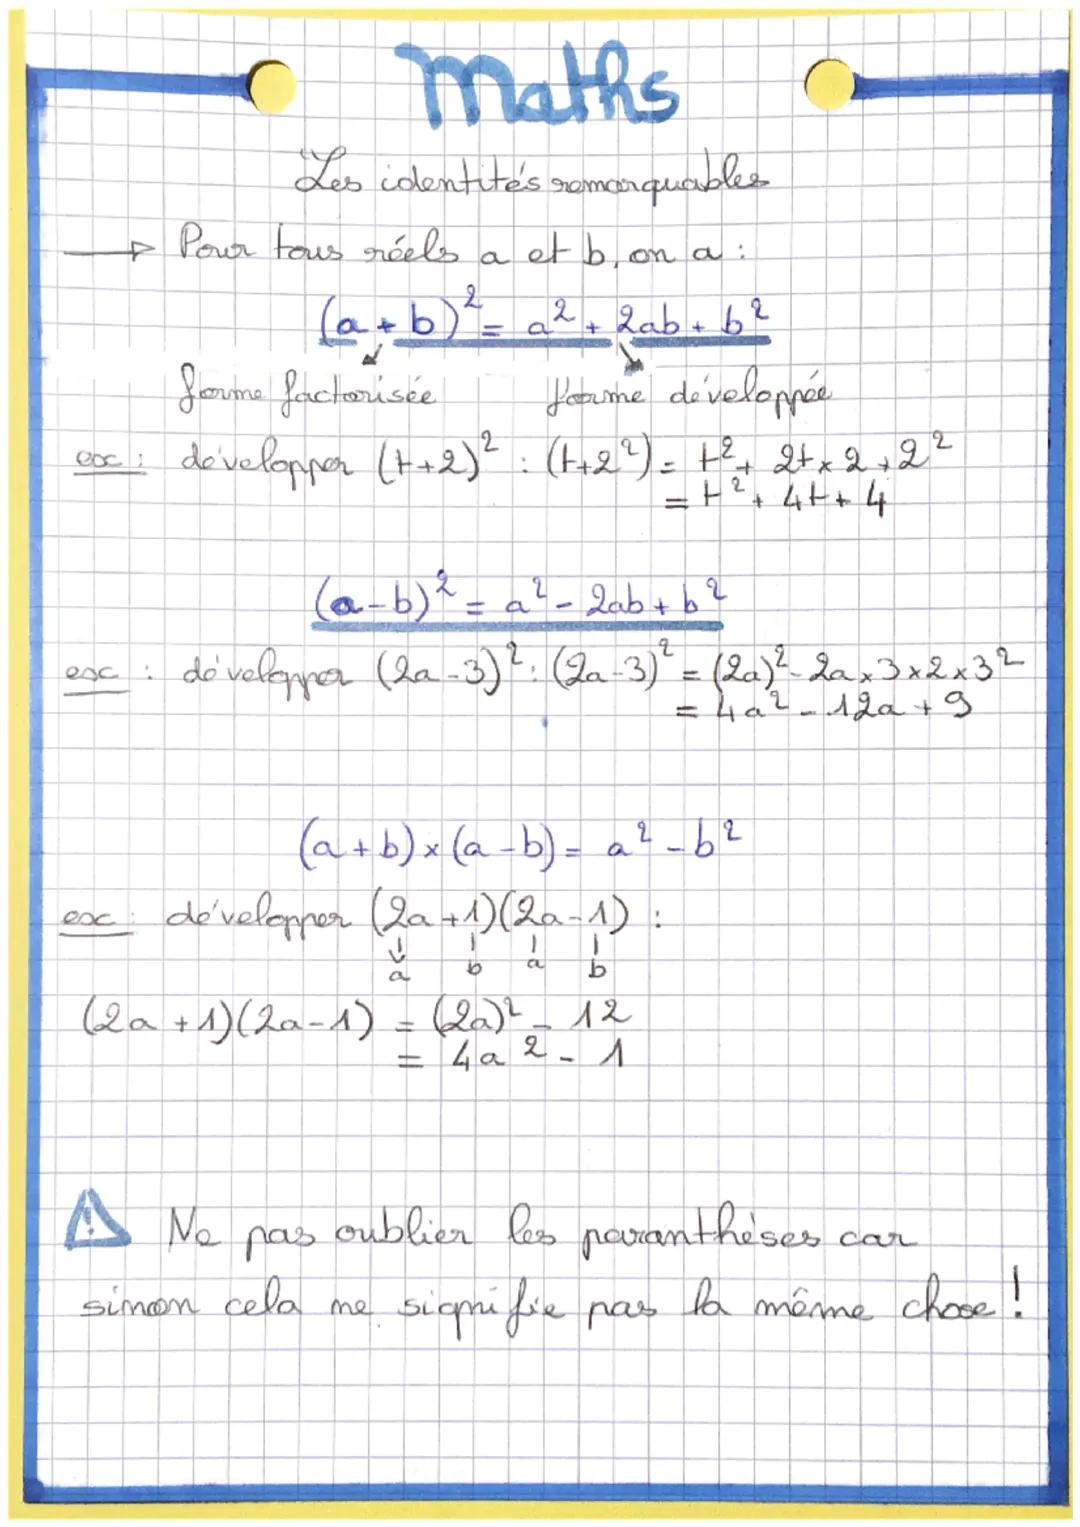 Maths
Les identités remarquables
→ Pour tous réels a et b, on a :
(a+b)² = a² + 2ab + b²
forme factorisée forme développée
ex : développer (t+2)² : (t+2²) = t² + 2t × 2 + 2²
= t² + 4t + 4
(a-b)² = a² - 2ab + b²
ex : développer (2a-3)² : (2a-3)² = (2a)² - 2a × 3 × 2 × 3²
= 4a² - 12a + 9
(a+b) × (a-b) = a² - b²
ex : développer (2a+1)(2a-1) :
a b a b
(2a+1)(2a-1) = (2a)² - 12
= 4a² - 1
⚠ Ne pas oublier les paranthèses car
sinon cela ne signifie pas la même chose !